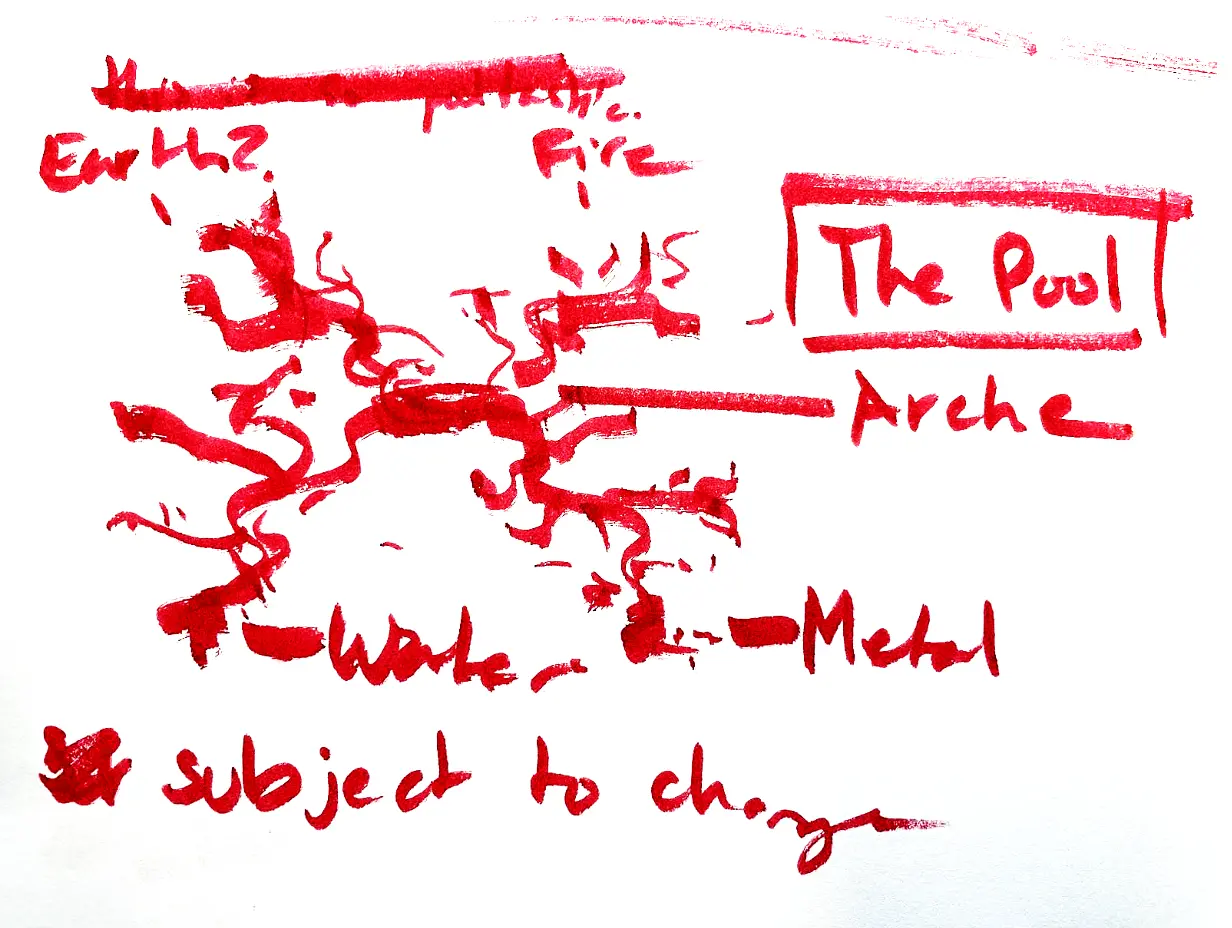 Earth?
Fire
The Pool
Arche
Water
Metal
subject to change